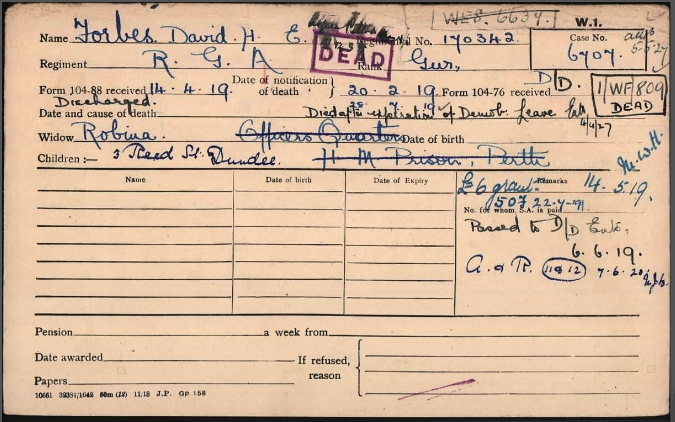 WFB. 6637.
W.1.
Name Forbes David H. E. Regimental No. 170342.
Case No. 6707.
DEAD
Regiment R. G. A Rank Gnr,
Form 104-88 received 14. 4. 19. Date of notification of death 20. 2. 19. Form 104-76 received D/D.
1/WF/809
DEAD
Discharged.
Date and cause of death Died after expiration of Demob. Leave
4/4/27
Widow Robina. Officers Quarters Date of birth
Children :— 3 Reed St. Dundee. H M Prison, Perth
M.W.H.
Name Date of birth Date of Expiry Remarks
£6 grant. 14. 5. 19.
507 22-7-19
No. for whom S.A. is paid
Passed to D/D
6. 6. 19.
A. & R. 11812 7-6-20
Pension a week from
Date awarded If refused, reason
Papers
10651 39381/1642 50m (12) 11/18 J.P. Gp 158